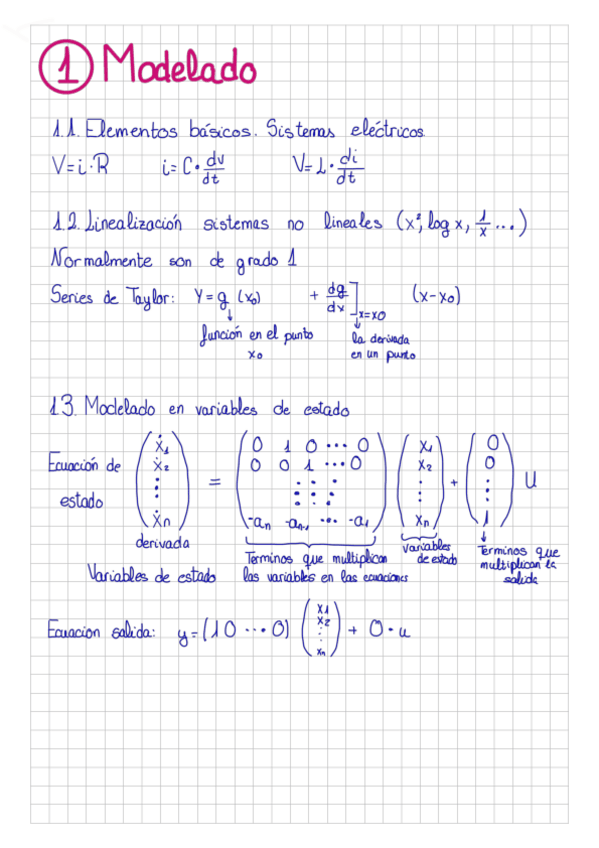 1 Modelado
1.1. Elementos básicos. Sistemas eléctricos.
V=i·R i=C·dv/dt V=L·di/dt
1.2. Linealización sistemas no lineales (x², log x, 1/x ...)
Normalmente son de grado 1
Series de Taylor: Y=g (x₀) + dg/dx]x=x0 (x-x₀)
↓ función en el punto x₀
↓ la derivada en un punto
1.3. Modelado en variables de estado
Ecuación de estado (ẋ₁ ẋ₂ ⋮ ẋn) = (0 1 0 ... 0
0 0 1 ... 0
⋮ ⋮ ⋮
-an -an-1 ... -a1) (x₁ x₂ ⋮ xn) + (0 0 ⋮ 1) U
derivada
Variables de estado
Términos que multiplican las variables en las ecuaciones
variables de estado
↓ términos que multiplican la salida
Ecuacion salida: y=(1 0 ... 0) (x₁ x₂ ⋮ xn) + 0·u